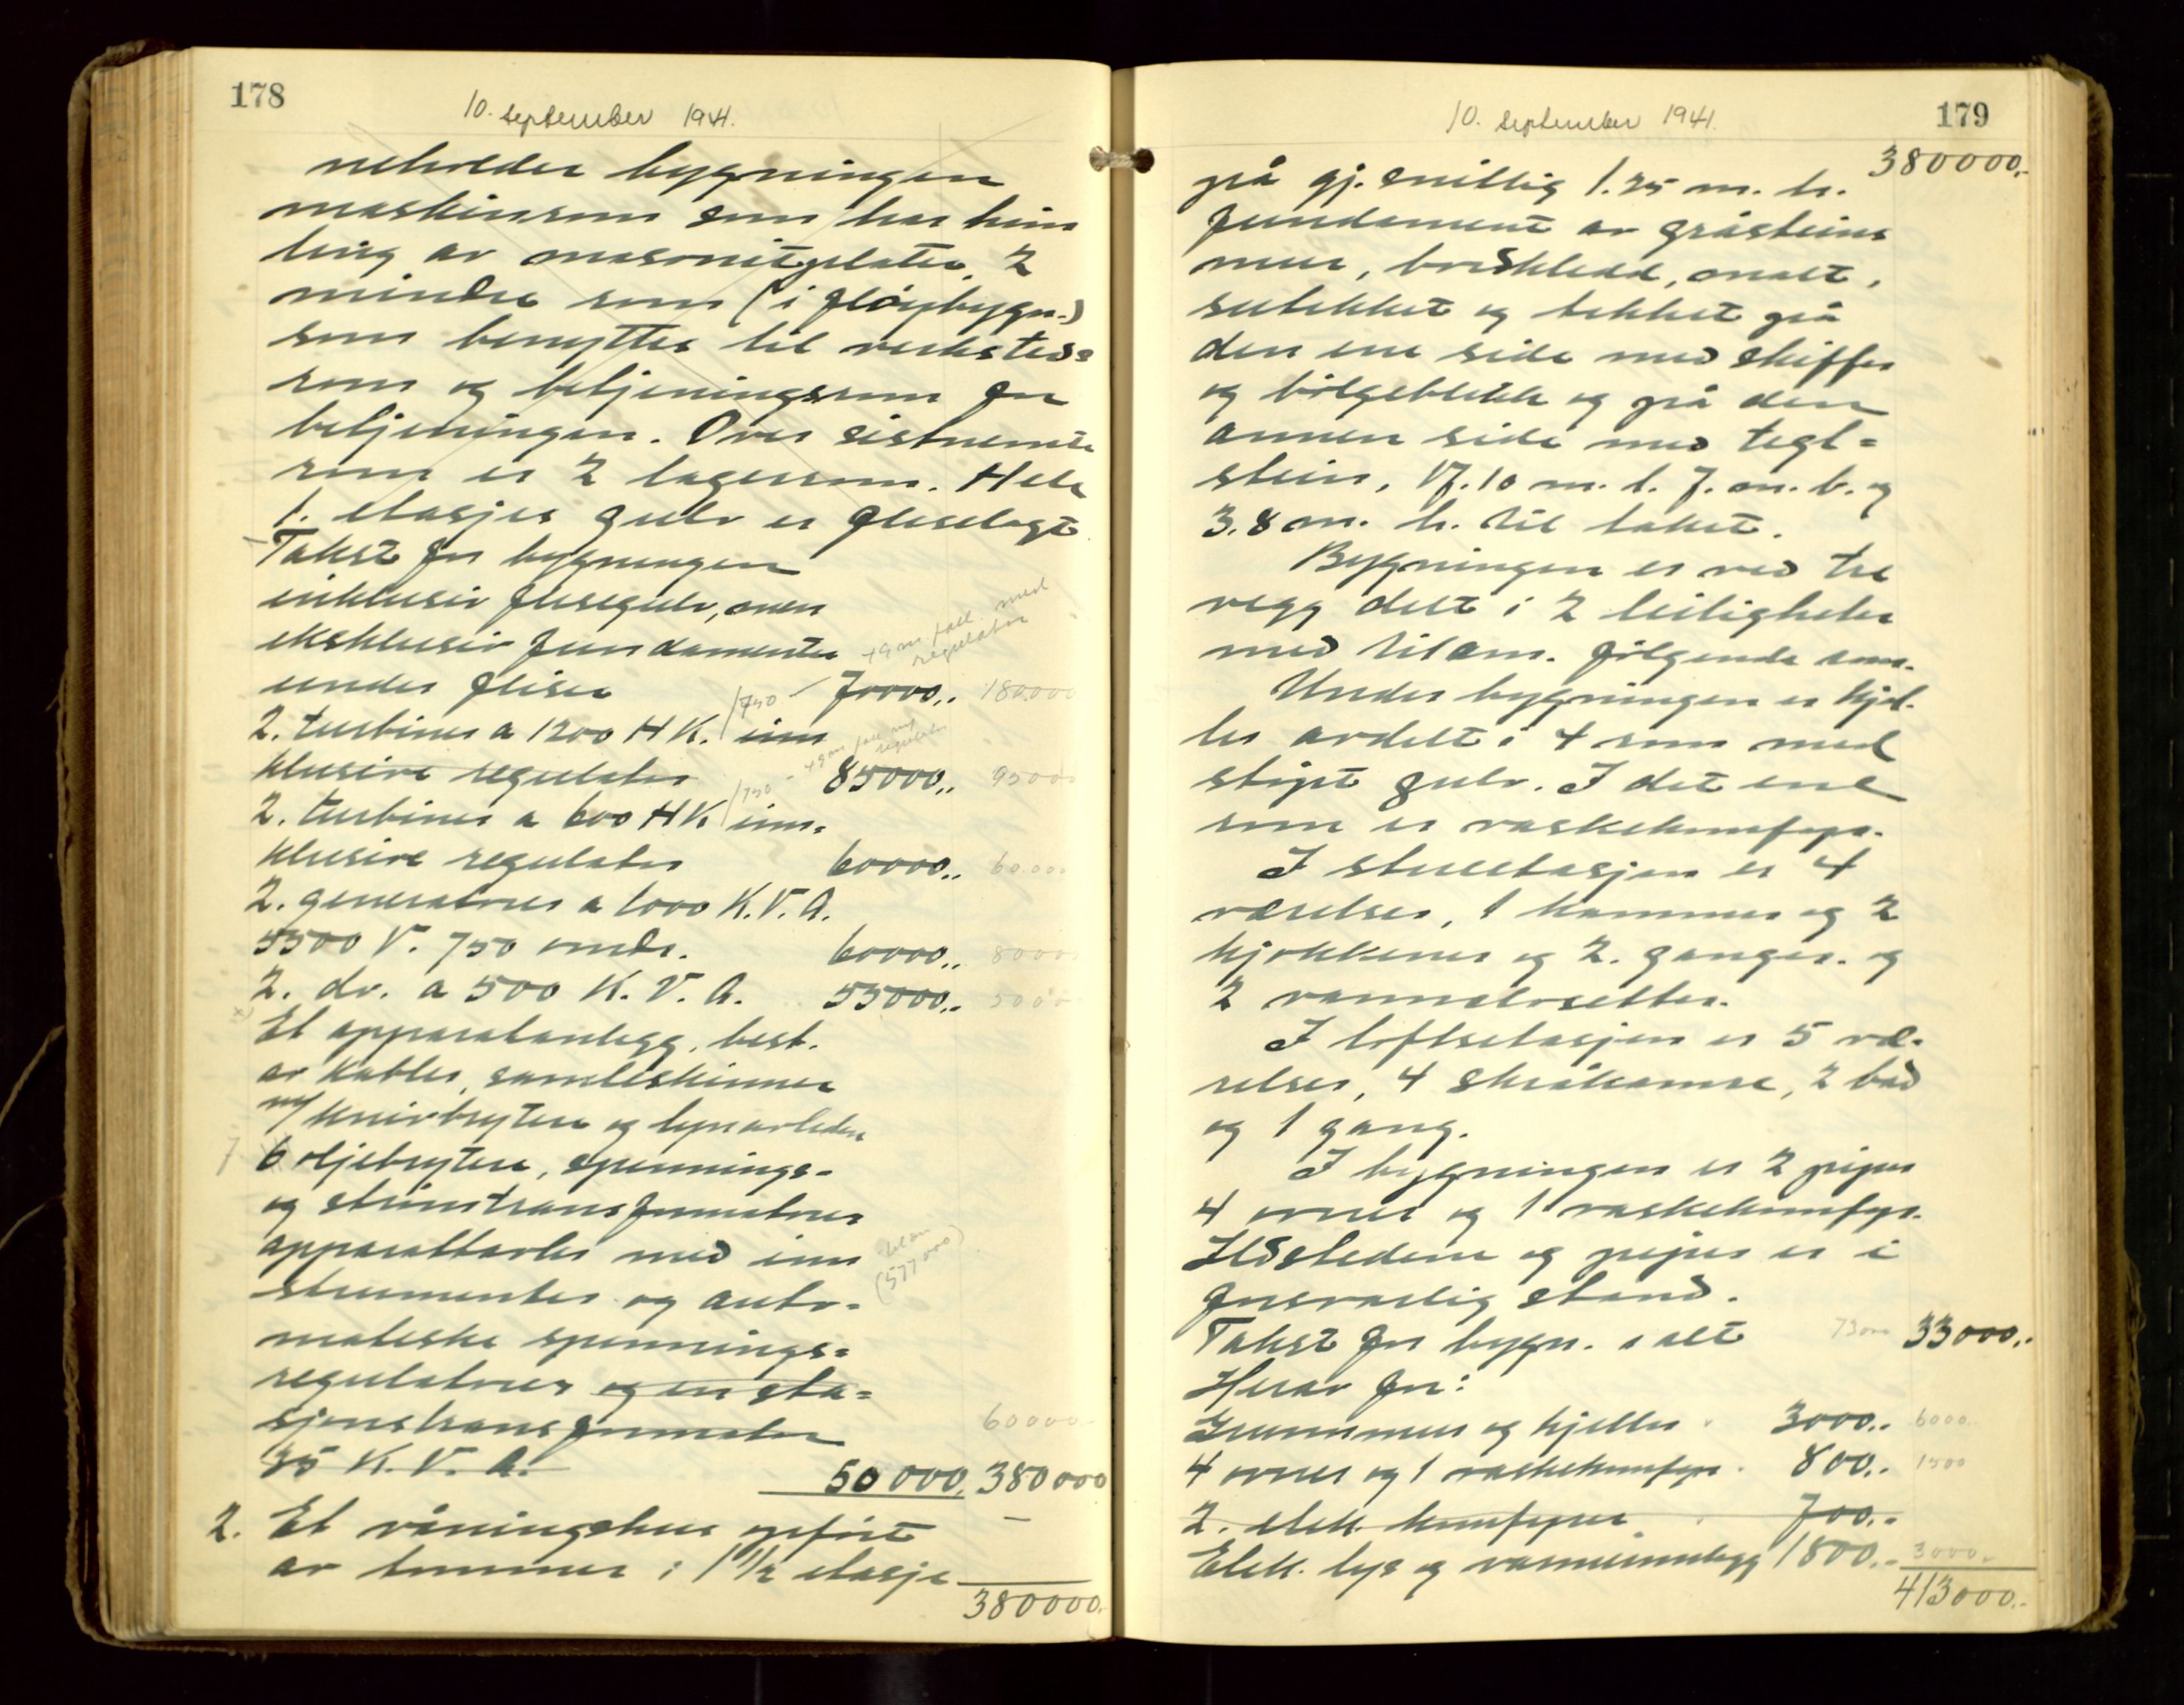 178
10. september 1941.
neholder bygningen
maskinrom som har him
ling av masonitplater, 2
mindre rom (i fløybygn.)
som benyttes til verksteds=
rom og betjeningsrom for
betjeningen. Over sistnemte
rom er 2 lagerrom. Hele
1. etasjes gulv er fliselagt
Takst for bygningen
inklusiv flisegulv, men
eksklusiv fundamenter
49 m. fall med
regulator
under fliser 70000,. 180.000
2. turbiner a 1200 H K. /750 inn
49 m fall m/
regulator
klusive regulator 85000,. 95000
2. turbiner a 600 H K /750 inn=
klusive regulator 60000,. 60.000
2. generatorer a 1000 K.V.A.
5500 V. 750 omdr. 60000,. 80000
2. do. a 500 K.V.A. 55000,. 50000
Et apparatanlegg, best.
av kabler, samleskinner
m/ knivbrytere og lynavleder
7 6 oljebrytere, spennings-
og strømtransformatorer
apparattavler med inn
strumenter og auto-
(577000)
matiske spennings=
regulatorer og en sta=
sjonstransformator 60000
35 K.V.A. 50 000, 380 000
2. Et våningshus opført
av tømmer i 1 1/2 etasje
380000.
179
10. september 1941.
380000,-
på gj.snittlig 1.25 m. h.
fundament av gråsteins
mur, bordkledd, malt,
sutekket og tekket på
den ene side med skiffer
og bølgeblikk og på den
annen side med tegl=
stein, 17.10 m. l. 7. m. b. og
3.8 m. h. til taket.
Bygningen er ved tre
vegg delt i 2 leiligheter
med tilsm. følgende rom.
Under bygningen er kjel-
ler avdelt i 4 rom med
støpt gulv. I det ene
rom er vaskekomfyr.
I stueetasjen er 4
værelser, 1 kammer og 2
kjøkkener og 2. ganger. og
2 vannklosetter.
I loftsetasjen er 5 væ-
relser, 4 skråkamre, 2 bad
og 1 gang.
I bygningen er 2 piper
4 ovner og 1 vaskekomfyr.
Ildstedene og piper er i
forsvarlig stand.
Takst for bygn. i alt 73000 33000,.
Herav for:
Grunnmur og kjeller 3000,. 6000,.
4 ovner og 1 vaskekomfyr. 800,. 1500
2. elek. komfyrer 700,-
Elek. lys og varmeinnlegg 1800,- 3000,-
413000,-